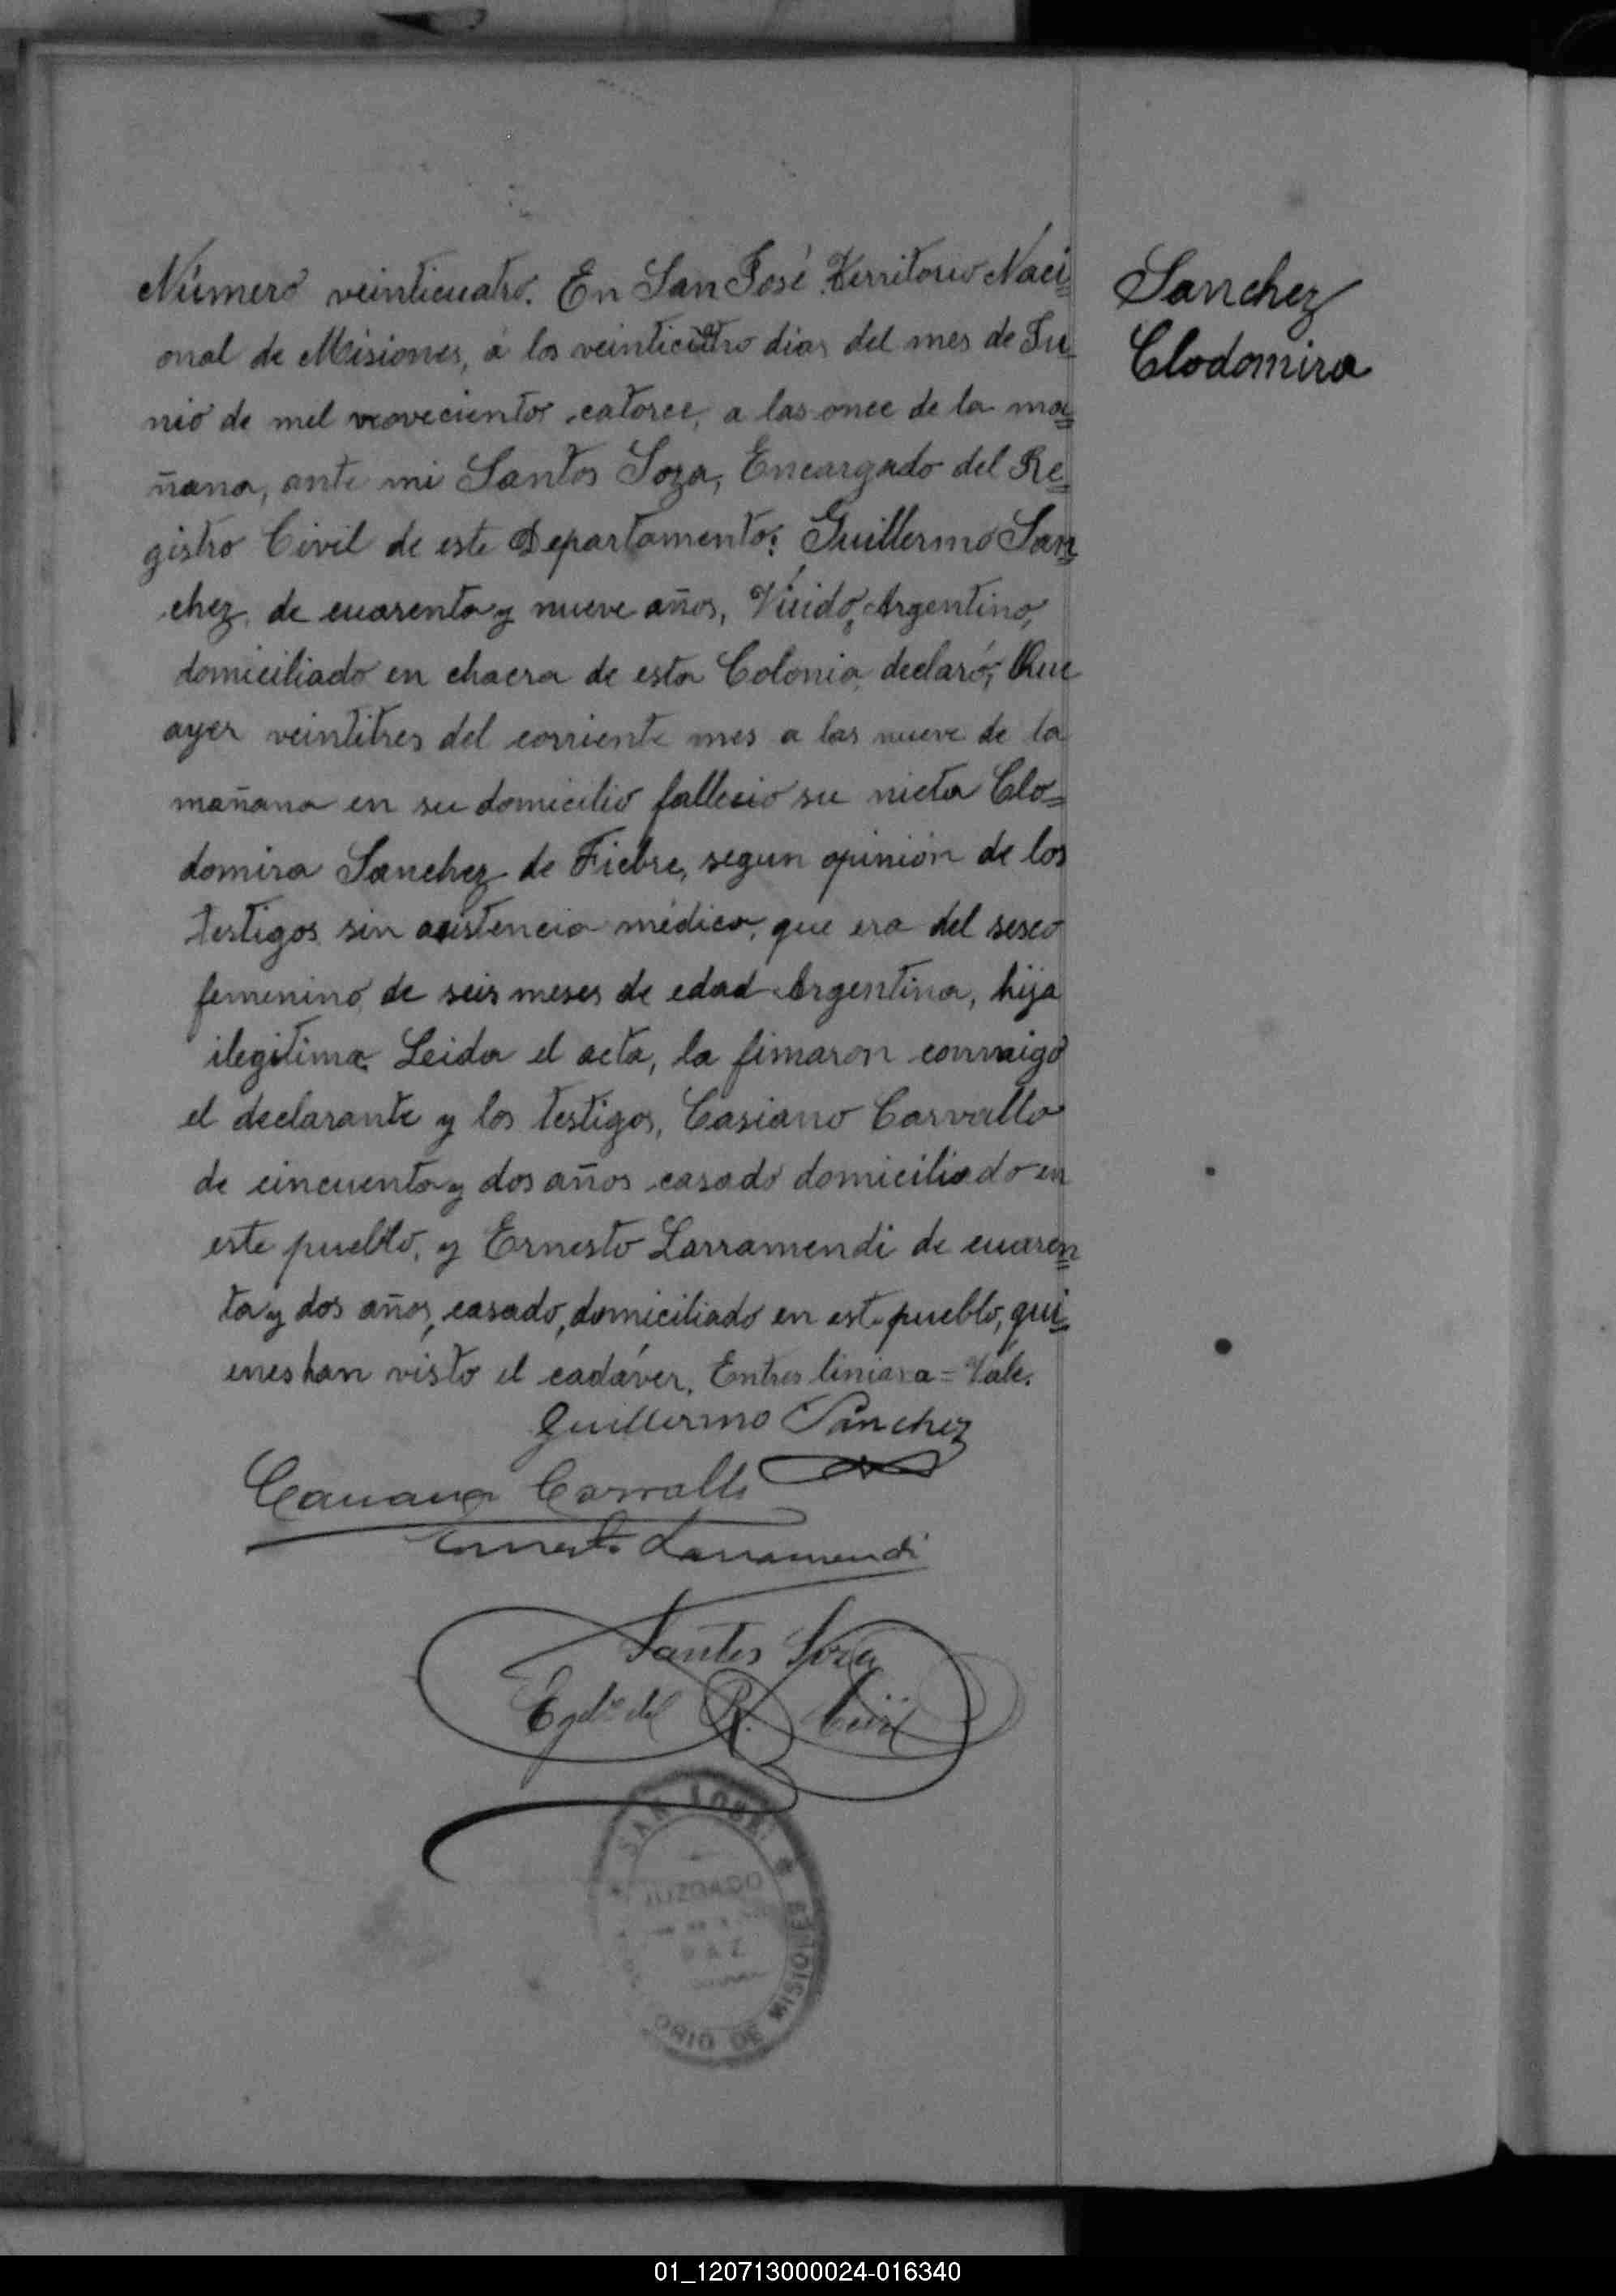 Número veinticuatro. En San José Territorio Naci-
onal de Misiones, á los veinticuatro dias del mes de Ju-
nio de mil novecientos catorce, a las once de la ma=
ñana, ante mi Santos Soza, Encargado del Re=
gistro Civil de este Departamento: Guillermo San=
chez, de cuarenta y nueve años, Viúdo, Argentino,
domiciliado en chacra de esta Colonia, declaró; Que
ayer veintitres del corriente mes a las nueve de la
mañana en su domicilio fallecio su nieta Clo=
domira Sanchez de Fiebre, segun opinión de los
testigos sin asistencia médica, que era del sexo
femenino, de seis meses de edad Argentina, hija
ilegitima. Leida el acta, la fimaron conmigo
el declarante y los testigos, Casiano Carvallo
de cincuenta y dos años casado domiciliado en
este pueblo, y Ernesto Larramendi de cuaren=
ta y dos años, casado, domiciliado en este pueblo, qui=
enes han visto el cadáver. Entres liniasa = Vale.
Sanchez
Clodomira
Guillermo Sanchez
Casiano Carvallo
Ernesto Larramendi
Santos Soza
Egdo del R. Civil
SAN JOSE
JUZGADO
PAZ
ORIO DE MISIONES
01_120713000024-016340